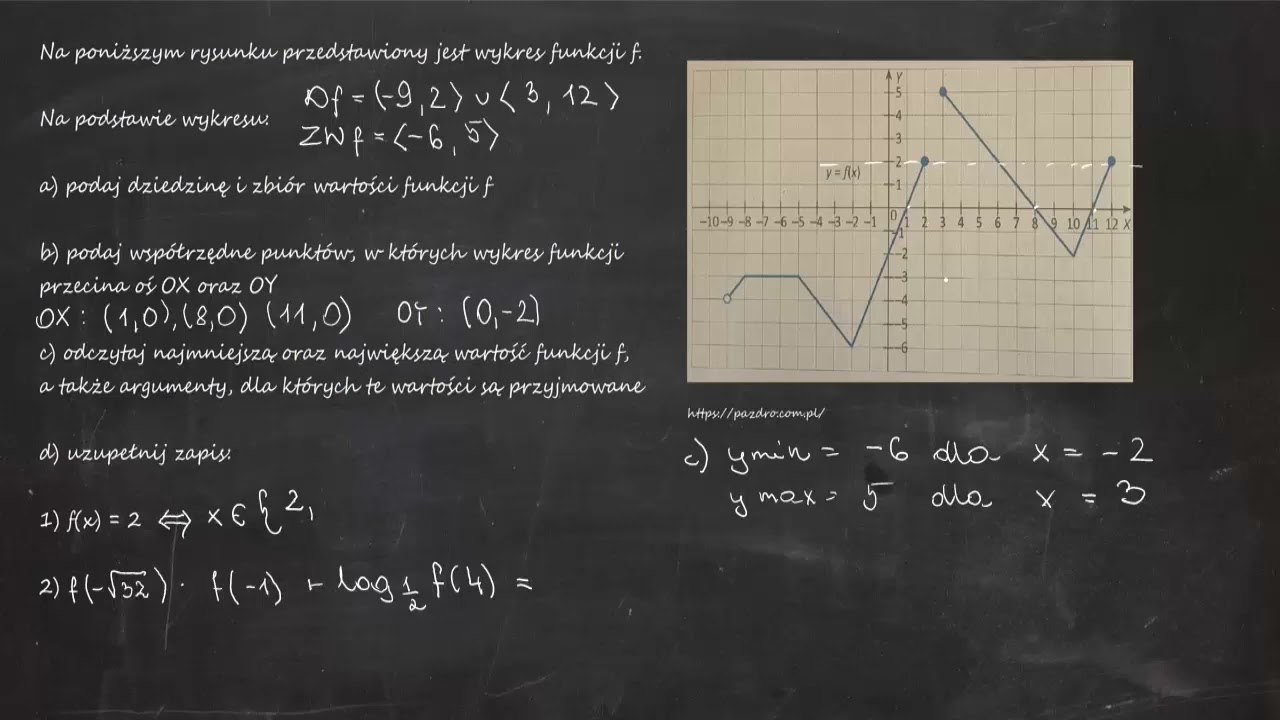 Na poniższym rysunku przedstawiony jest wykres funkcji f.
Df = (-9, 2⟩ ∪ ⟨3, 12⟩
Na podstawie wykresu:
ZWf = ⟨-6, 5⟩
a) podaj dziedzinę i zbiór wartości funkcji f
b) podaj współrzędne punktów, w których wykres funkcji
przecina oś OX oraz OY
OX : (1,0), (8,0) (11,0) OY : (0,-2)
c) odczytaj najmniejszą oraz największą wartość funkcji f,
a także argumenty, dla których te wartości są przyjmowane
d) uzupełnij zapis:
1) f(x) = 2 ⇔ x ∈ { 2,
2) f(-√32) · f(-1) + log 1/2 f(4) =
Y
5
4
3
2
y = f(x)
1
0
-10 -9 -8 -7 -6 -5 -4 -3 -2 -1 1 2 3 4 5 6 7 8 9 10 11 12 X
-1
-2
-3
-4
-5
-6
https://pazdro.com.pl/
c) ymin = -6 dla x = -2
ymax = 5 dla x = 3